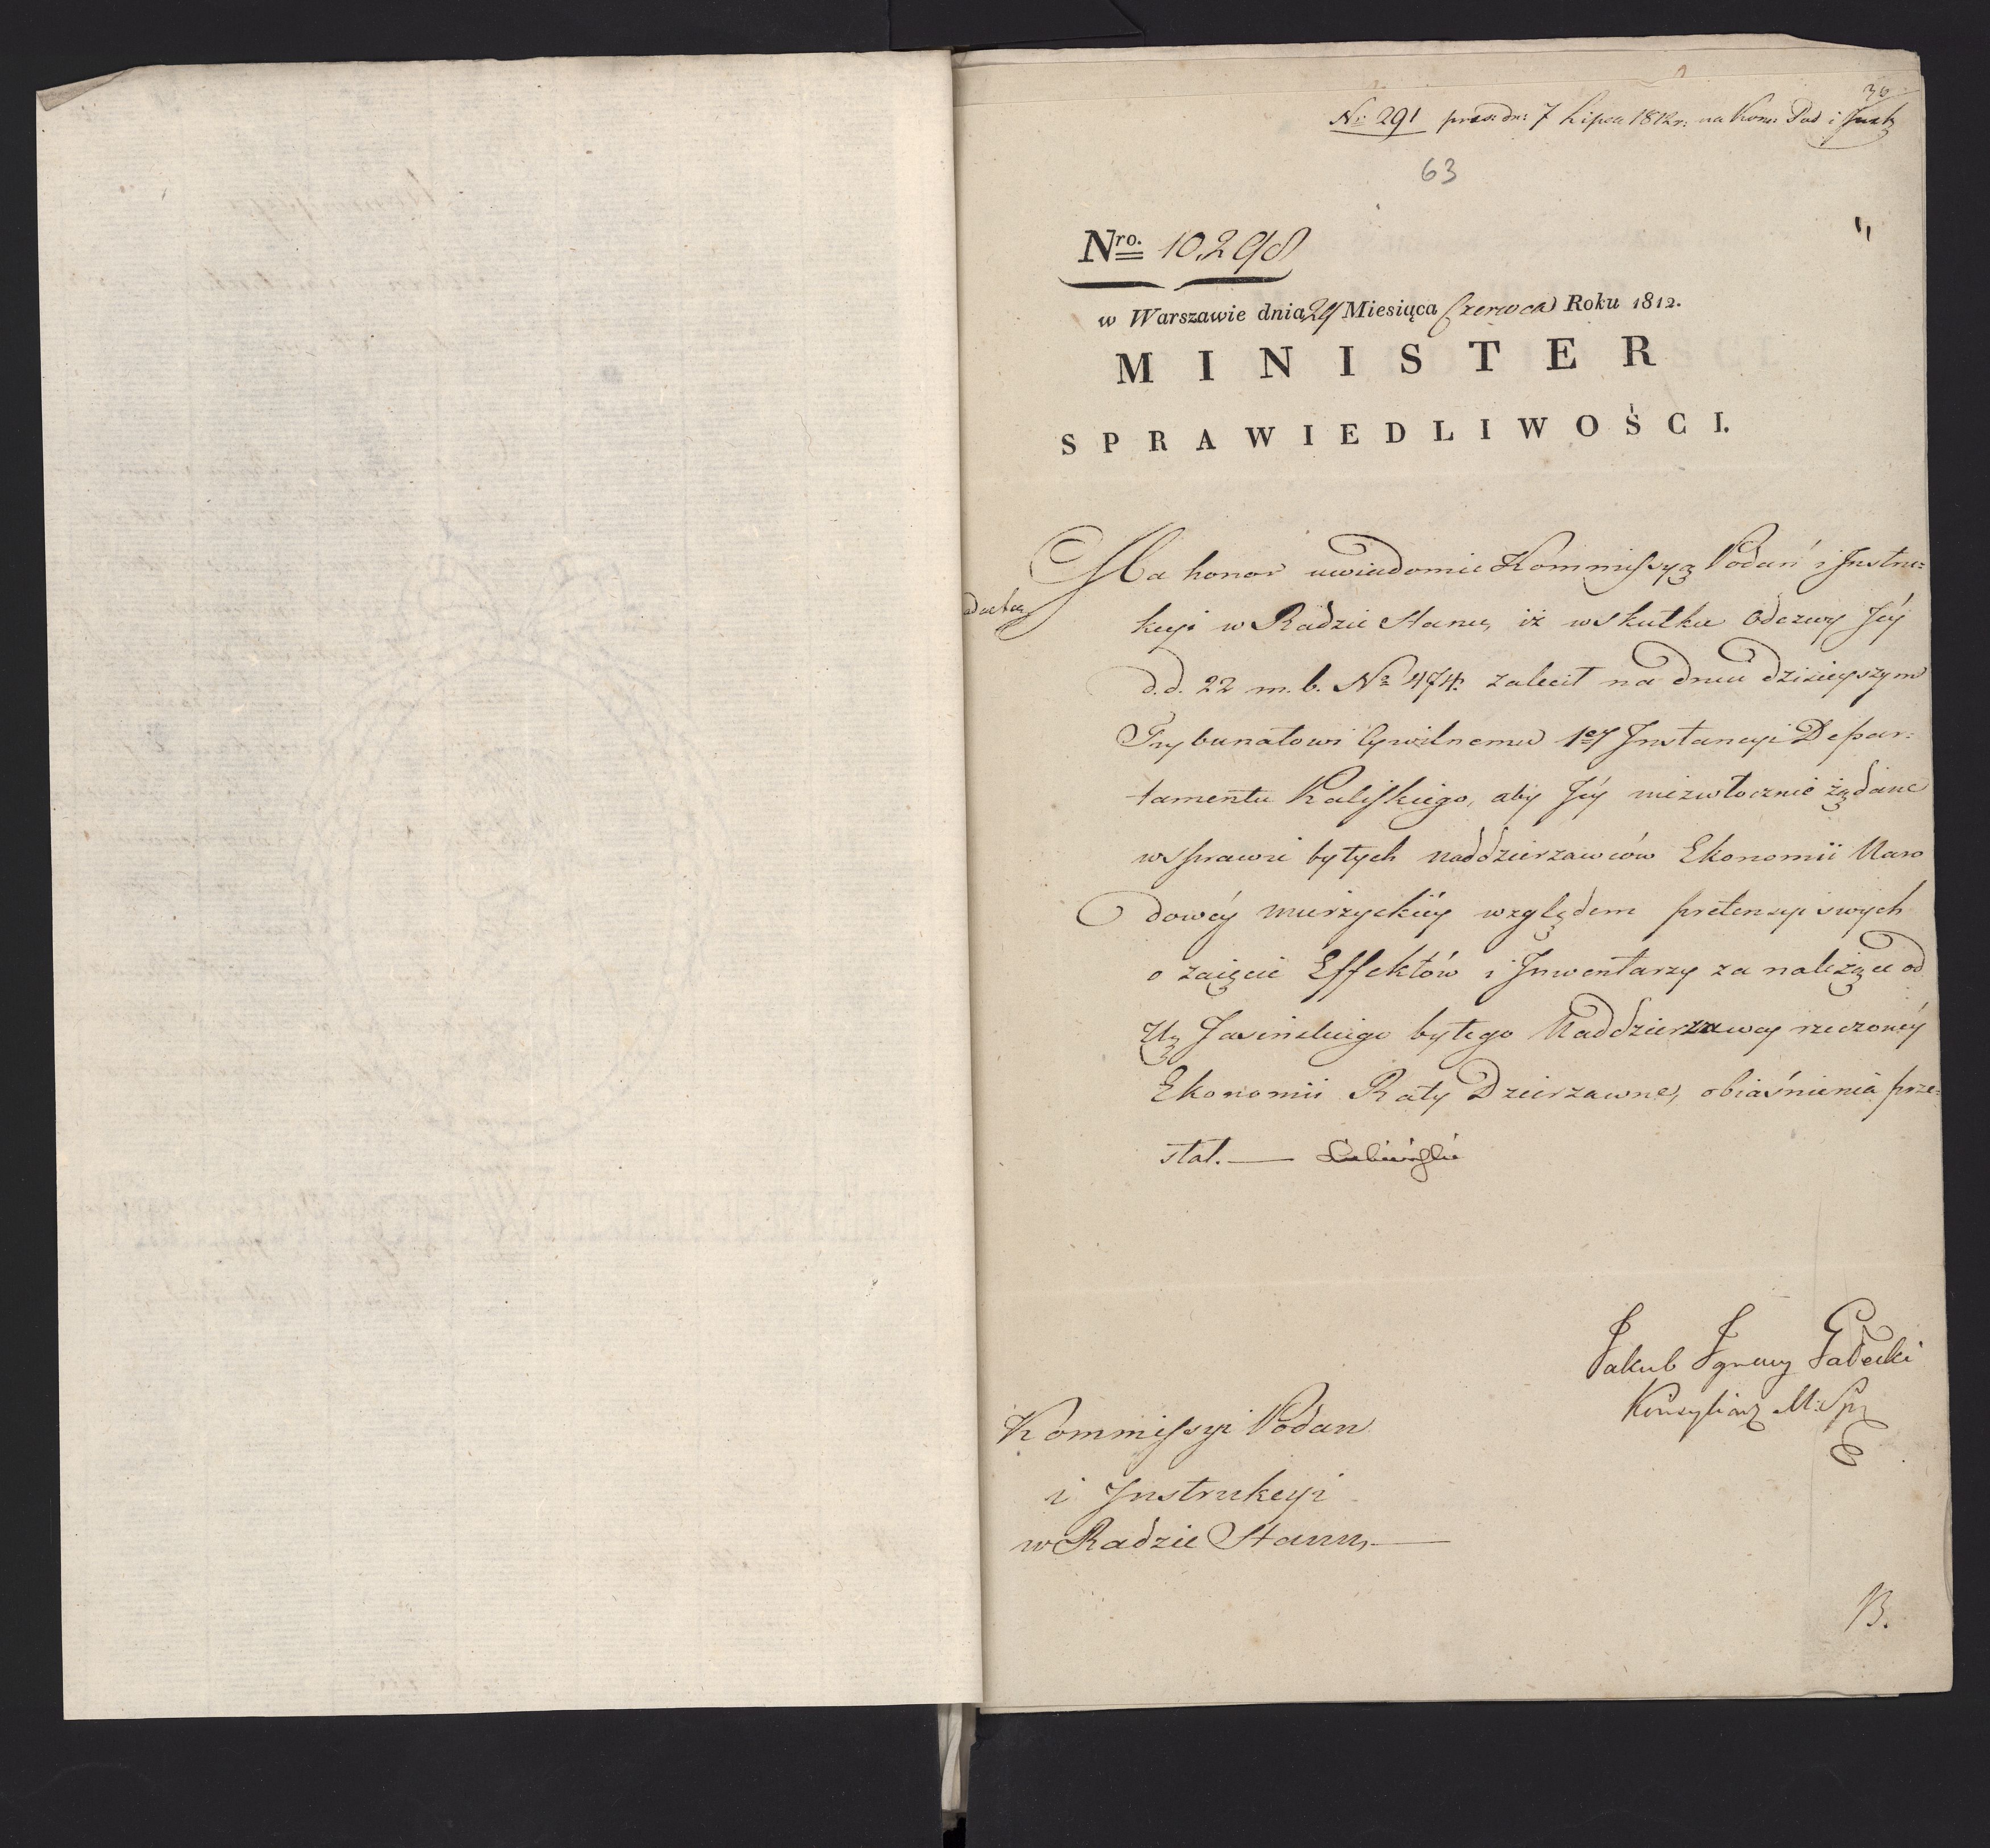 30
Nr: 291 præs: dn: 7 Lipca 1812 r. na Kom: Pod i Instr
63
Nro. 10,298
w Warszawie dnia 24 Miesiąca Czerwca Roku 1812.
MINISTER
SPRAWIEDLIWOŚCI.
Ma honor uwiadomić Kommissyą Podań i Instru=
kcyi w Radzie Stanu, iż w skutku Odezwy Jéy
d.d. 22 m. b. No 474. zalecił na dniu dzisieyszym
Trybunałowi Cywilnemu 1ey Instancyi Depar=
tamentu Kaliskiego, aby Jéy niezwłocznie żądane
w sprawie byłych naddzierzawców Ekonomii Naro
dowéy mierzyckiéy względem pretensyi swych
o zaięcie Effektów i Inwentarzy za należące od
Ur Jasińskiego byłego Naddzierzawcy rzeczonéy
Ekonomii Raty Dzierzawne, obiaśnienia prze=
słał. — Lubieński
Jakub Ignacy Gadecki
Konsyliarz M: Spr
Kommissyi Podan
i Instrukcyi
w Radzie Stanu, —
B.